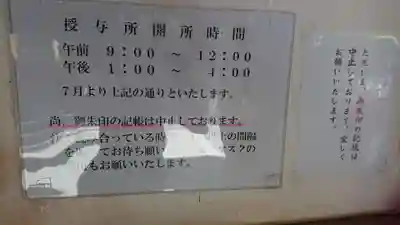 授与所開所時間
午前 9:00 ～ 12:00
午後 1:00 ～ 4:00
7月より上記の通りといたします。
尚、御朱印の記帳は中止しております。
合っている時 の間隔
お待ち願い マスクの
もお願いいたします。
ただいま、御朱印の記帳は
中止しております。宜しく
お願いいたします。